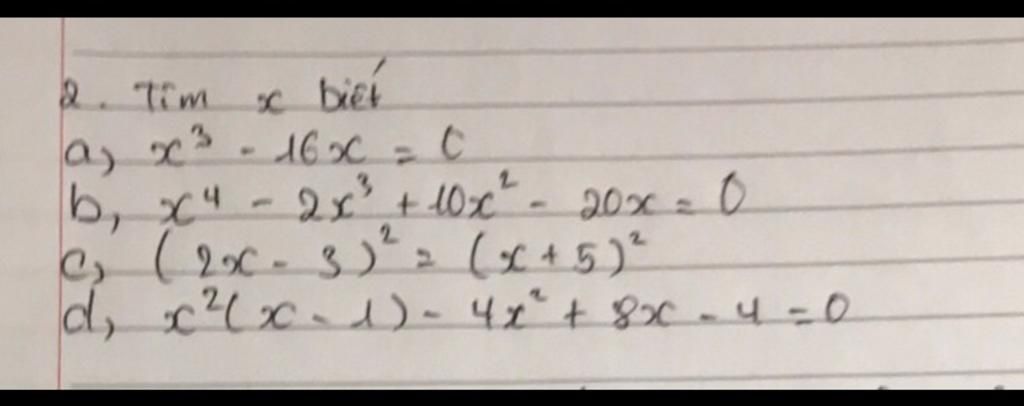 2. Tìm x biết
a, x³ - 16x = 0
b, x⁴ - 2x³ + 10x² - 20x = 0
c, (2x - 3)² = (x + 5)²
d, x²(x - 1) - 4x² + 8x - 4 = 0